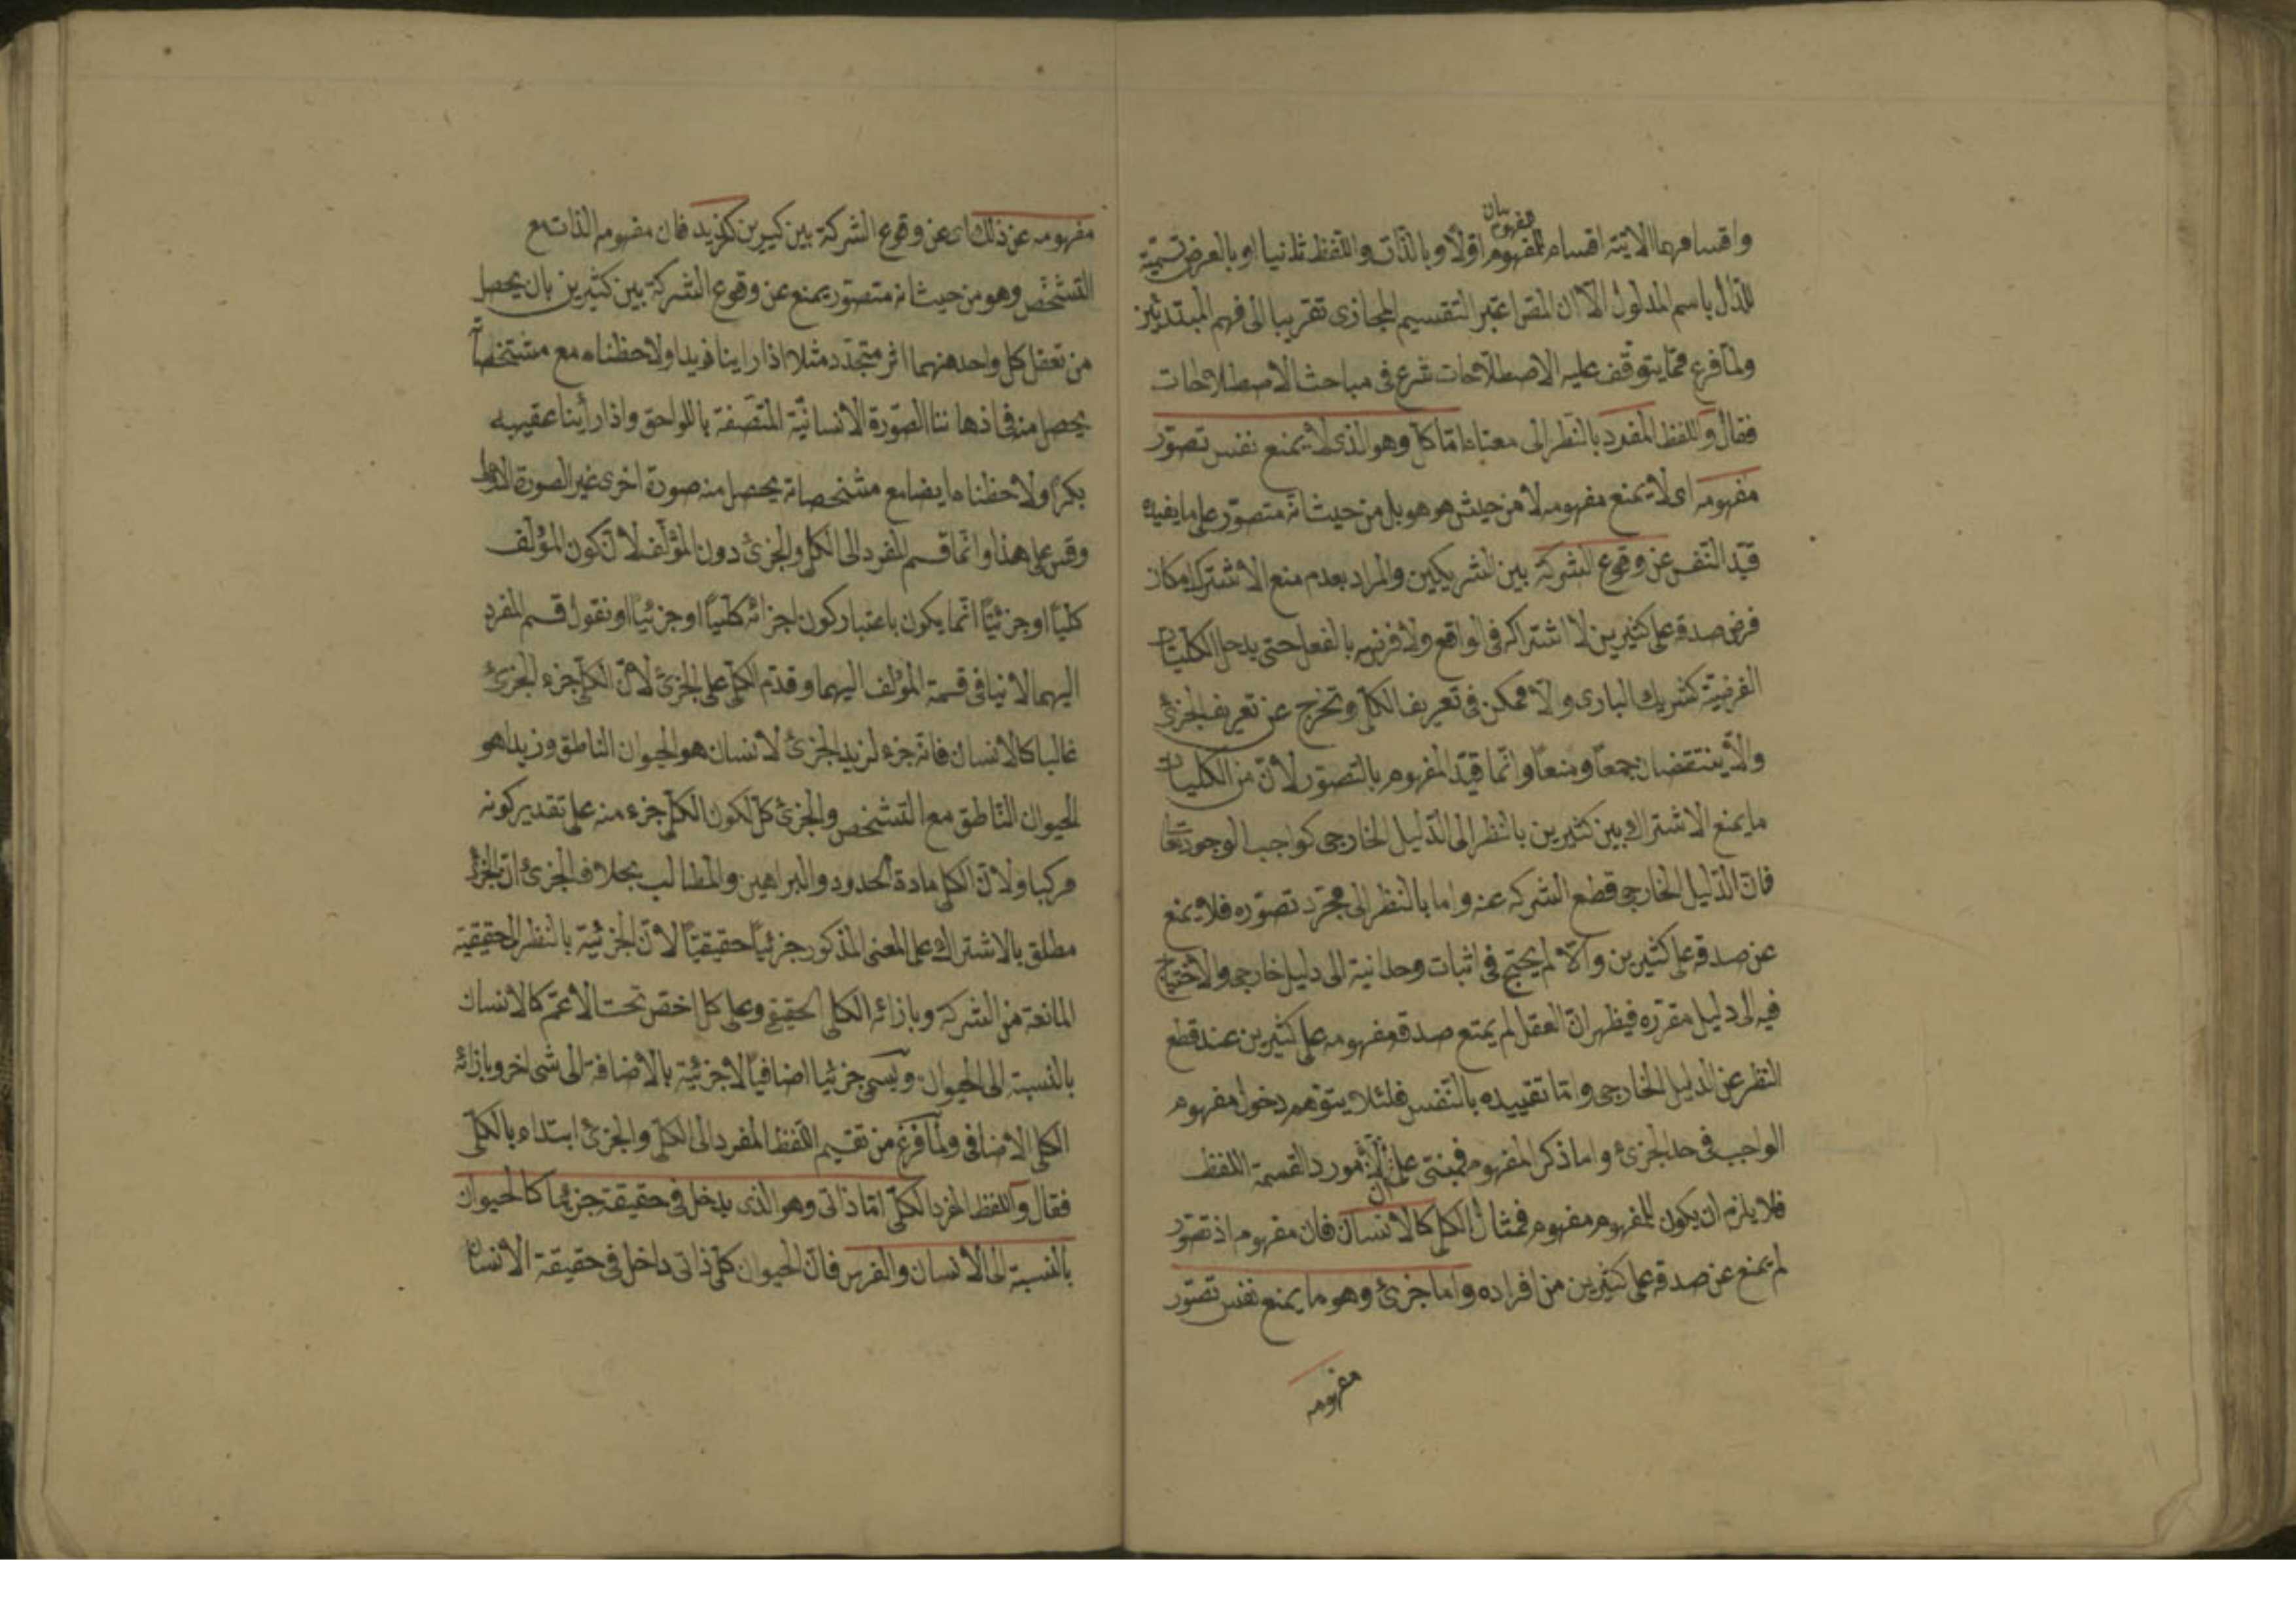 بيان
مفهوم
واقسامهما الاتية اقسام للمفهوم اوّلاً وبالذّات واللّفظ ثانيا او بالعرض تسمية
للدّال باسم المدلول الّا ان المص اعتبر التقسيم المجازى تقريبا الى فهم المبتدئين
ولمّا فرغ ممّا يتوقّف عليه الاصطلاحات شرع فى مباحث الاصطلاحات
فقال واللفظ المفرد بالنّظر الى معناه امّا كلّى وهو الذى لا يمنع نفس تصوّر
مفهومه اى لا يمنع مفهومه لا من حيث هو هو بل من حيث انّه متصوّر على ما يفيده
قيّد النّفس عن وقوع الشركة بين الشريكين والمراد بعدم منع الاشتراك امكان
فرض صدقه على كثيرين لا اشتراكه فى الواقع ولا فرضه بالفعل حتى يدخل الكليّات
الفرضيّة كشريك البارى ولا ممكن فى تعريف الكلّى وتخرج عن تعريف الجزئى
والّا ينتقضان جمعًا ومنعًا وانّما قيّد المفهوم بالتصوّر لانّ من الكليات
ما يمنع الاشتراك بين كثيرين بالنظر الى الدّليل الخارجى كواجب الوجود تعا
فانّ الدّليل الخارجى قطع الشركة عنه واما بالنظر الى مجرّد تصوّره فلا يمنع
عن صدقه على كثيرين والّا لم يحتج فى اثبات وحدانية الى دليل خارجى والاحتياج
فيه الى دليل مقرّره فيظهر انّ العقل لم يمنع صدق مفهومه على كثيرين عند قطع
النظر عن الدليل الخارجى وامّا تقييده بالنّفس فلئلا يتوّهم دخول مفهوم
الواجب فى حد الجزئى واما ذكر المفهوم فمبنى على انّ مورد القسمة اللفظ
فلا يلزم ان يكون للمفهوم مفهوم فمثال الكلى كالانسان فان مفهومه اذ تصوّر
لم يمنع عن صدقه على كثيرين من افراده واما جزئى وهو ما يمنع نفس تصوّر
مفهومه
مفهومه عن ذلك اى عن وقوع الشركة بين كثيرين كزيد فان مفهومه الذات مع
التشخّص وهو من حيث انه متصوّر يمنع عن وقوع الشركة بين كثيرين بان يحصل
من تعقل كل واحد منهما اثر متجدّد مثلا اذا راينا فريدا ولاحظناه مع مشخّصاته
يحصل منه فى اذهاننا الصّورة الانسانيّة المتّصفة باللواحق واذا رأينا عقيبه
بكرًا ولاحظناه ايضا مع مشخصاته يحصل منه صورة اخرى غير الصورة الاولى
وقس على هذا وانّما قسم المفرد الى الكلى والجزئى دون المؤلّف لانّ كون المؤلّف
كليًّا او جزئيًّا انّما يكون باعتبار كون اجزائه كليًّا او جزئيًّا او نقول قسم المفرد
اليهما لا ينافى قسمة المؤلف اليهما وقدّم الكلّى على الجزئى لانّ الكلّى جزء الجزئى
غالبا كالانسان فانّه جزء لزيد الجزئى لانسان هو الحيوان الناطق وزيدا هو
الحيوان النّاطق مع التشخص والجزئى كلّ لكون الكلّى جزء منه على تقدير كونه
مركبا ولانّ الكلى مادة الحدود والبراهين والمطالب بخلاف الجزئى انّ الجزئى
مطلق بالاشتراك على المعنى المذكور جزئيًّا حقيقيًّا لانّ الجزئيّة بالنظر الى حقيقته
المانعة من الشركة وبازائه الكلى الحقيقى وعلى كل اخصّ تحت الاعمّ كالانسان
بالنّسبة الى الحيوان ويسمّى جزئيا اضافيًّا لاجزئيّة بالاضافة الى شى اخر وبازائه
الكلى الاضافى ولمّا فرغ من تقسيم اللّفظ المفرد الى الكلّى والجزئى ابتداء بالكلّى
فقال واللفظ المفرد الكلّى امّا ذاتى وهو الذى يدخل فى حقيقة جزئيّاته كالحيوان
بالنّسبة الى الانسان والفرس فانّ الحيوان كلّى ذاتى داخل فى حقيقة الانسان